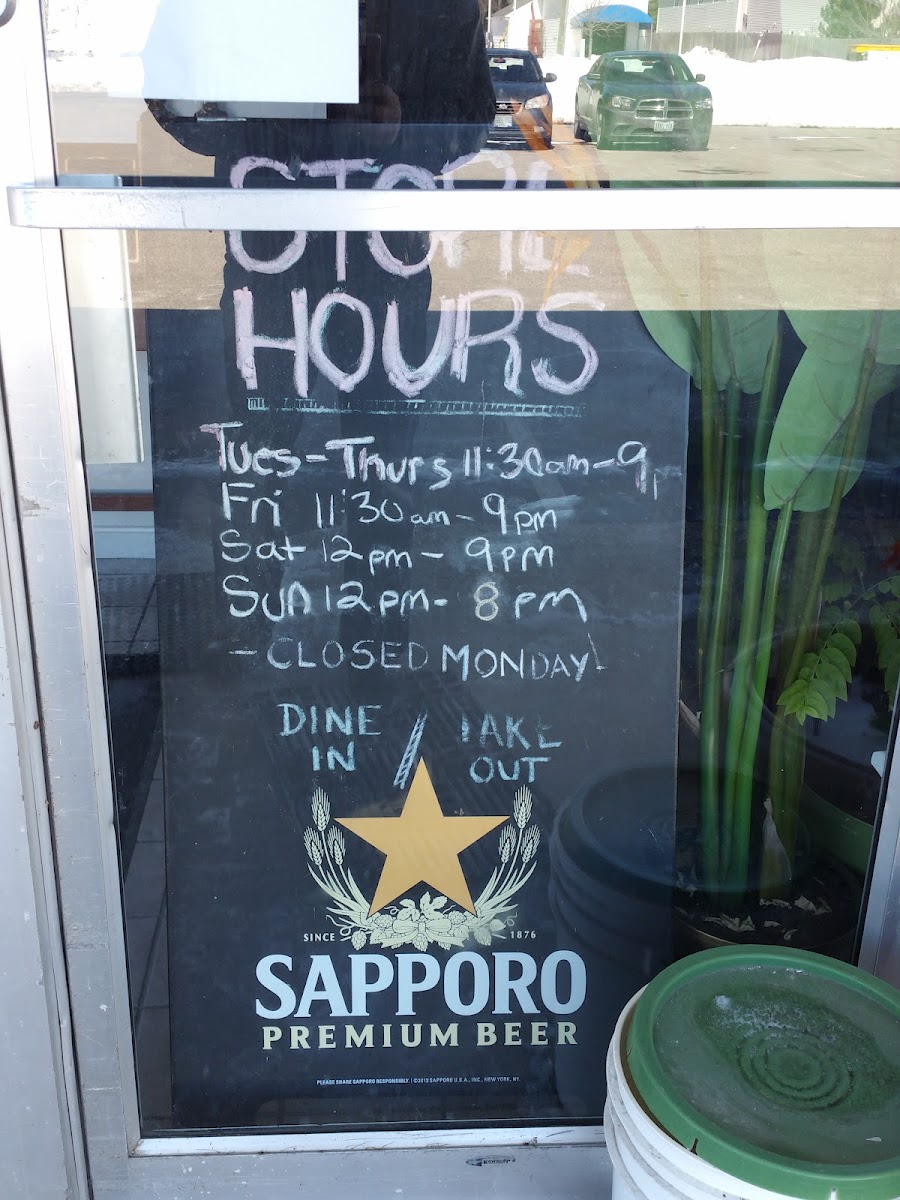 STORE
HOURS
Tues-Thurs 11:30am-9p
Fri 11:30am-9pm
Sat 12pm-9pm
Sun 12pm-8pm
-CLOSED MONDAY!
DINE IN / TAKE OUT
SINCE 1876
SAPPORO
PREMIUM BEER
PLEASE SHARE SAPPORO RESPONSIBLY. ©2013 SAPPORO U.S.A., INC., NEW YORK, NY.